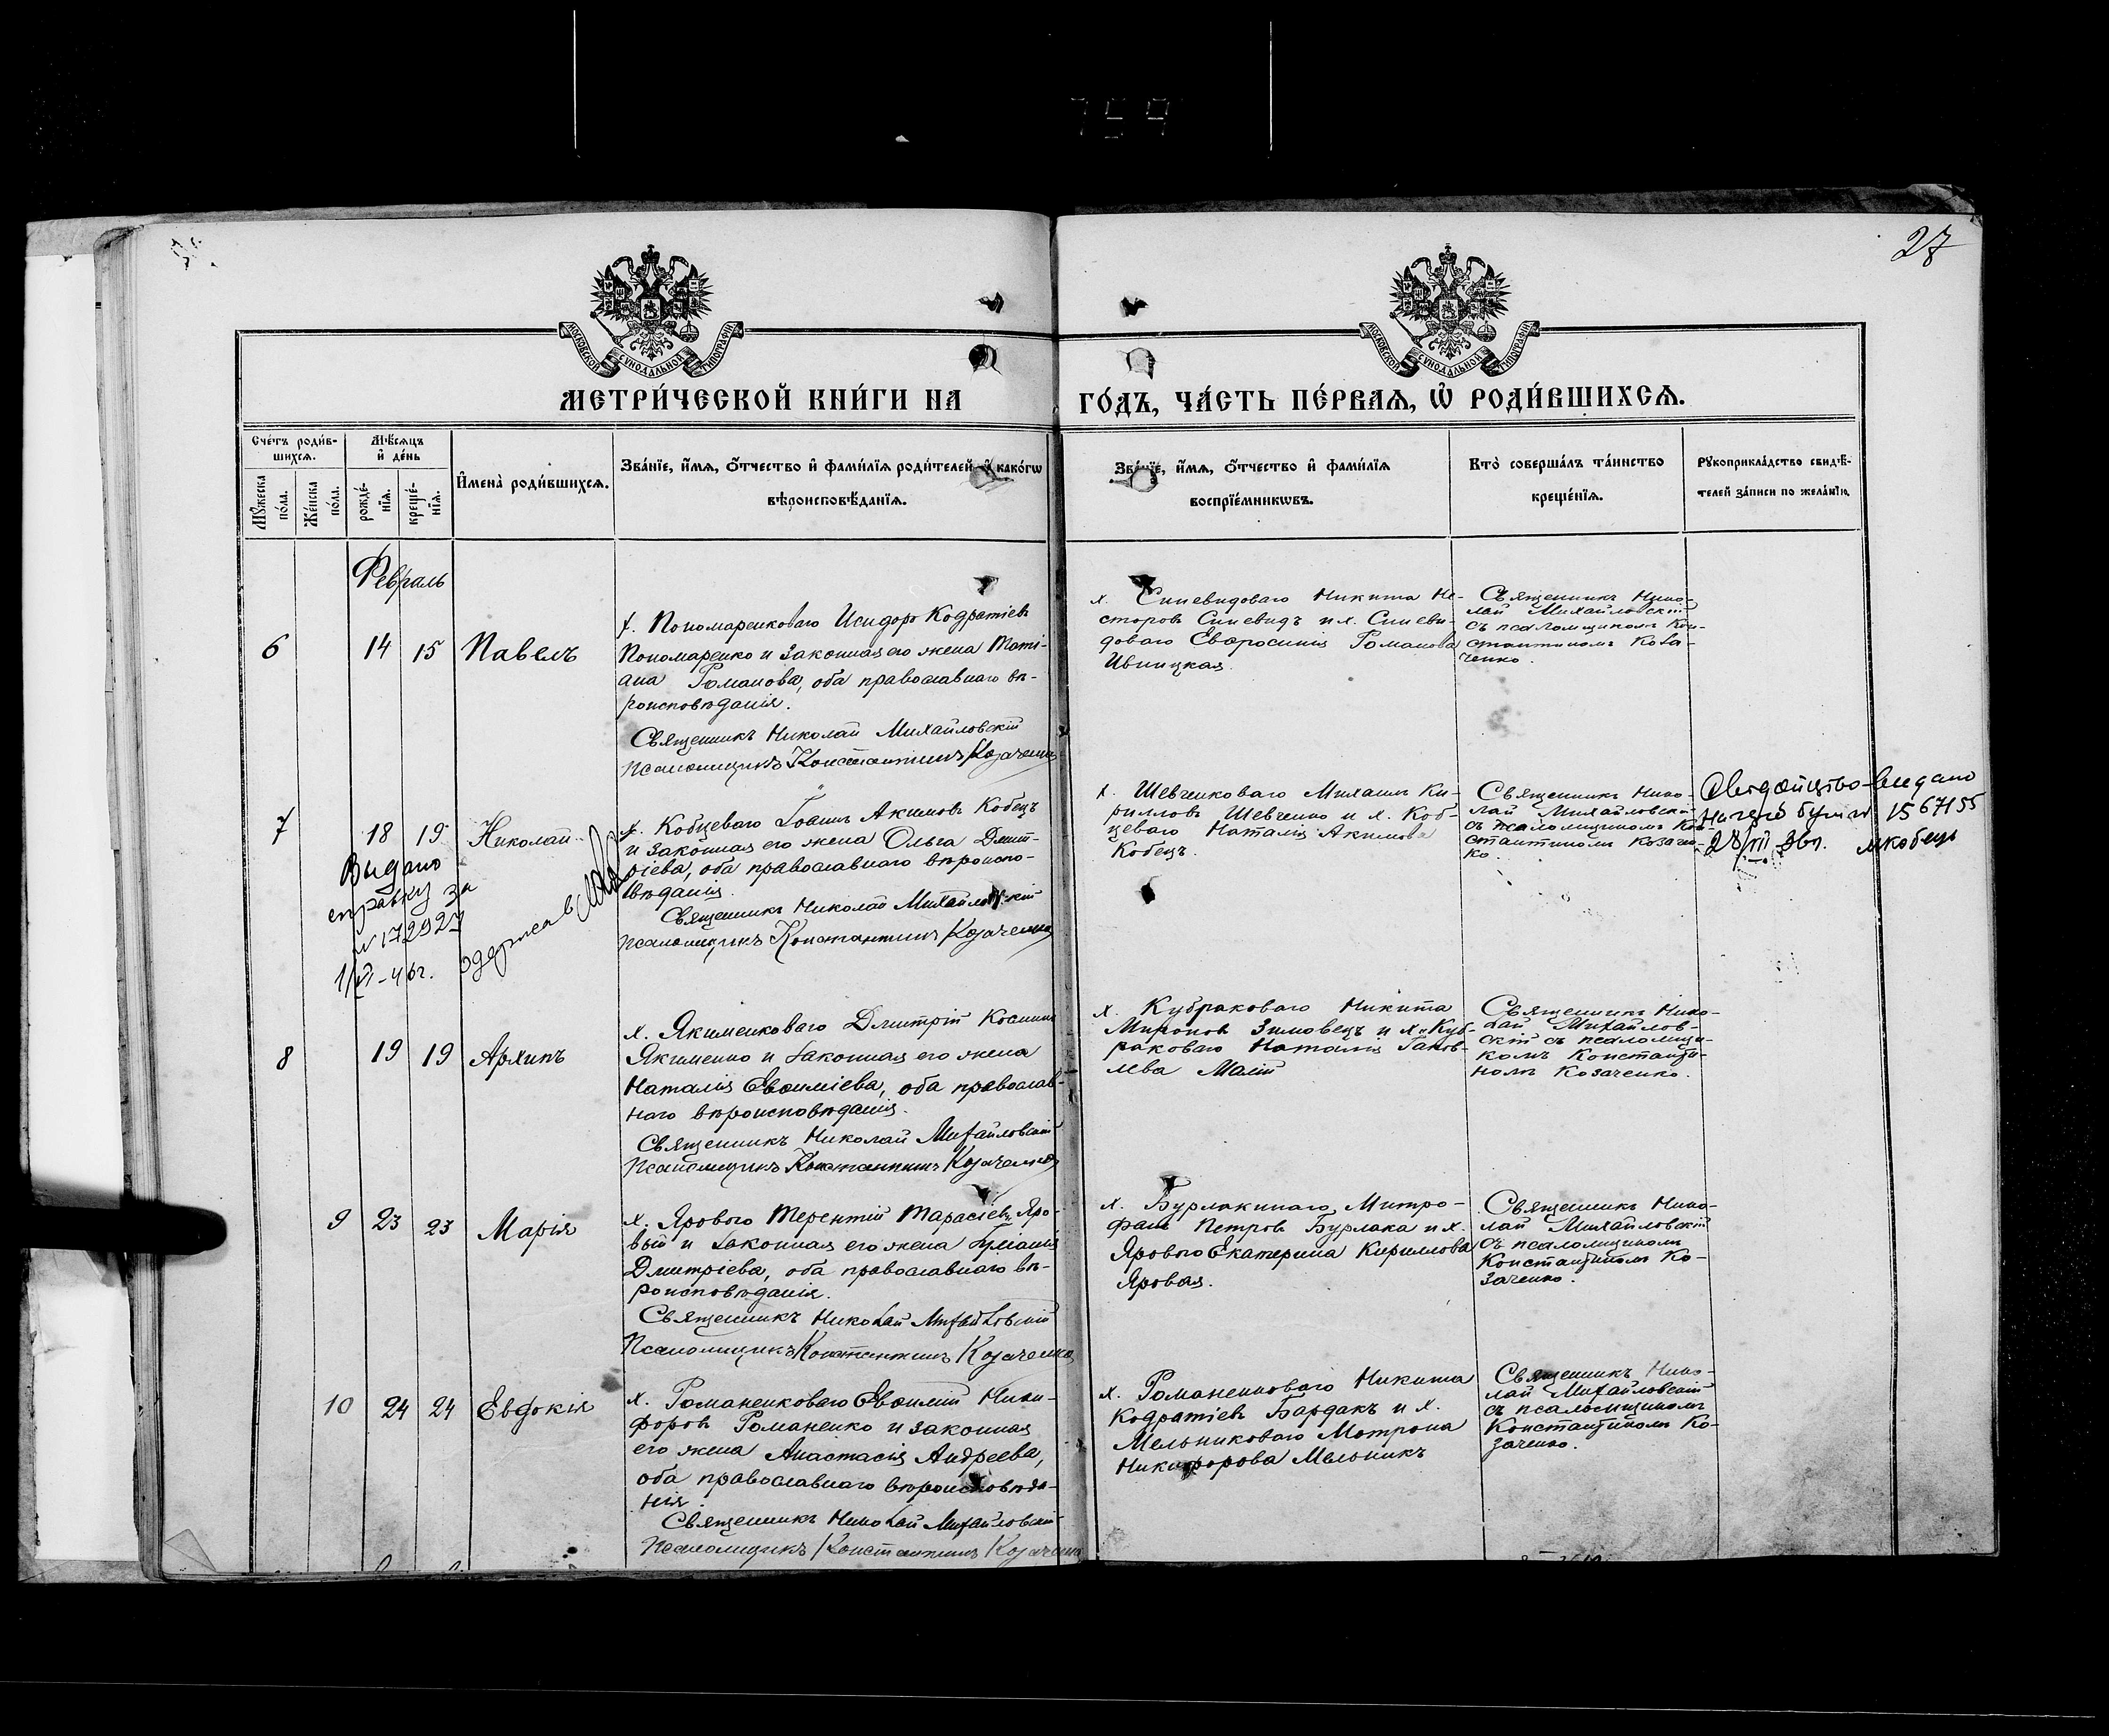 759
27
МОСКОВСКОЙ СѴНОДАЛЬНОЙ ТИПОГРАФІИ
МОСКОВСКОЙ СѴНОДАЛЬНОЙ ТИПОГРАФІИ
МЕТРИ́ЧЕСКОЙ КНИ́ГИ НА
ГО́ДЪ, ЧА́СТЬ ПЕ́РВАѦ, Ѡ҆ РОДИ́ВШИХСѦ.
Сче́тъ роди́в-
шихсѧ.
Мꙋ́жеска
по́ла.
Же́нска
по́ла.
Мѣ́сѧцъ
и҆ де́нь
рожде́-
нїѧ.
креще́-
нїѧ.
И҆мена̀ роди́вшихсѧ.
Зва́нїе, и҆́мѧ, ѻ҆́тчество и҆ фами́лїѧ роди́телей, и҆ како́гѡ
вѣроисповѣ́данїѧ.
Зва́нїе, и҆́мѧ, ѻ҆́тчество и҆ фами́лїѧ
воспрїе́мникѡвъ.
Кто̀ соверша́лъ та́инство
креще́нїѧ.
Рꙋкоприкла́дство свидѣ́-
телей за́писи по жела́нїю.
Февраль
6
14
15
Павелъ
х. Пономаренкового Исидоръ Кодратіевъ
Пономаренко и законная его жена Тати-
ана Романова, оба православнаго вѣ-
роисповѣданія.
Священникъ Николай Михайловскій
Псаломщикъ Константинъ Козаченко
х. Синевидоваго Никита Не-
сторовъ Синевидъ и х. Синеви-
доваго Евфросинія Романова
Ивницкая.
Священникъ Нико-
лай Михайловскій
съ псаломщикомъ Кон-
стантиномъ Коза-
ченко.
7
18
19
Николай
х. Кобцеваго Іоаннъ Акимовъ Кобецъ
и законная его жена Ольга Дмит-
ріева, оба православнаго вѣроиспо-
вѣданія.
Священникъ Николай Михайловскій
Псаломщикъ Константинъ Козаченко
х. Шевченковаго Михаилъ Ки-
рилловъ Шевченко и х. Коб-
цеваго Наталія Акимова
Кобецъ.
Священникъ Нико-
лай Михайловскій
съ псаломщикомъ Кон-
стантиномъ Козачен-
ко.
1567155
28/III 36р.
Выдано
справку за
№ 172927
1/VI-46г.
одержав
8
19
19
Архипъ
х. Якименковаго Дмитрій Косминъ
Якименко и законная его жена
Наталія Евфиміева, оба православ-
наго вѣроисповѣданія.
Священникъ Николай Михайловскій
Псаломщикъ Константинъ Козаченко
х. Кубраковаго Никита
Мироновъ Зимовецъ и х. Куб-
раковаго Наталія
Священникъ Нико-
лай Михайлов-
скій съ псаломщи-
комъ Константи-
номъ Козаченко.
9
23
23
Марія
х. Ярового Терентій Тарасіевъ Яро-
вый и законная его жена Іуліанія
Дмитріева, оба православнаго вѣ-
роисповѣданія.
Священникъ Николай Михайловскій
Псаломщикъ Константинъ Козаченко
х. Бурлакинаго Митро-
фанъ Петровъ Бурлака и х.
Ярового Екатерина Кириллова
Яровая.
Священникъ Нико-
лай Михайловскій
съ псаломщикомъ
Константиномъ Ко-
заченко.
10
24
24
Евдокія
х. Романенковаго Евфимій Ники-
форовъ Романенко и законная
его жена Анастасія Андреева,
оба православнаго вѣроисповѣда-
нія.
Священникъ Николай Михайловскій
Псаломщикъ Константинъ Козаченко
х. Романенковаго Никита
Кодратіевъ Бардакъ и х.
Мельниковаго Мотрона
Никифорова Мельникъ
Священникъ Нико-
лай Михайловскій
съ псаломщикомъ
Константиномъ Ко-
заченко.